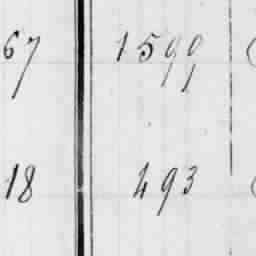 67 1599
18 493